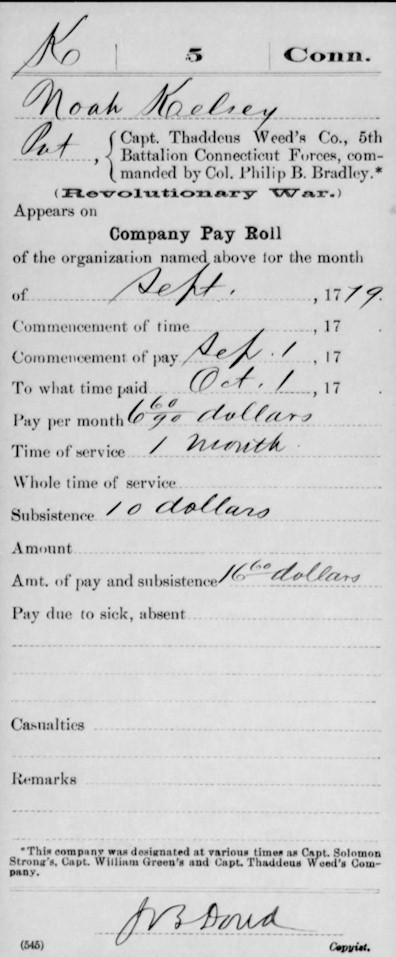 K 5 Conn.
Noah Kelsey
Pvt , { Capt. Thaddeus Weed's Co., 5th
Battalion Connecticut Forces, com-
manded by Col. Philip B. Bradley.*
(Revolutionary War.)
Appears on
Company Pay Roll
of the organization named above for the month
of Sept. , 1779.
Commencement of time , 17 .
Commencement of pay Sep. 1 , 17 .
To what time paid Oct. 1 , 17 .
Pay per month 6 60/90 dollars
Time of service 1 month
Whole time of service
Subsistence 10 dollars
Amount
Amt. of pay and subsistence 16 60 dollars
Pay due to sick, absent
Casualties
Remarks
*This company was designated at various times as Capt. Solomon
Strong's, Capt. William Green's and Capt. Thaddeus Weed's Com-
pany.
(545) Copyist.